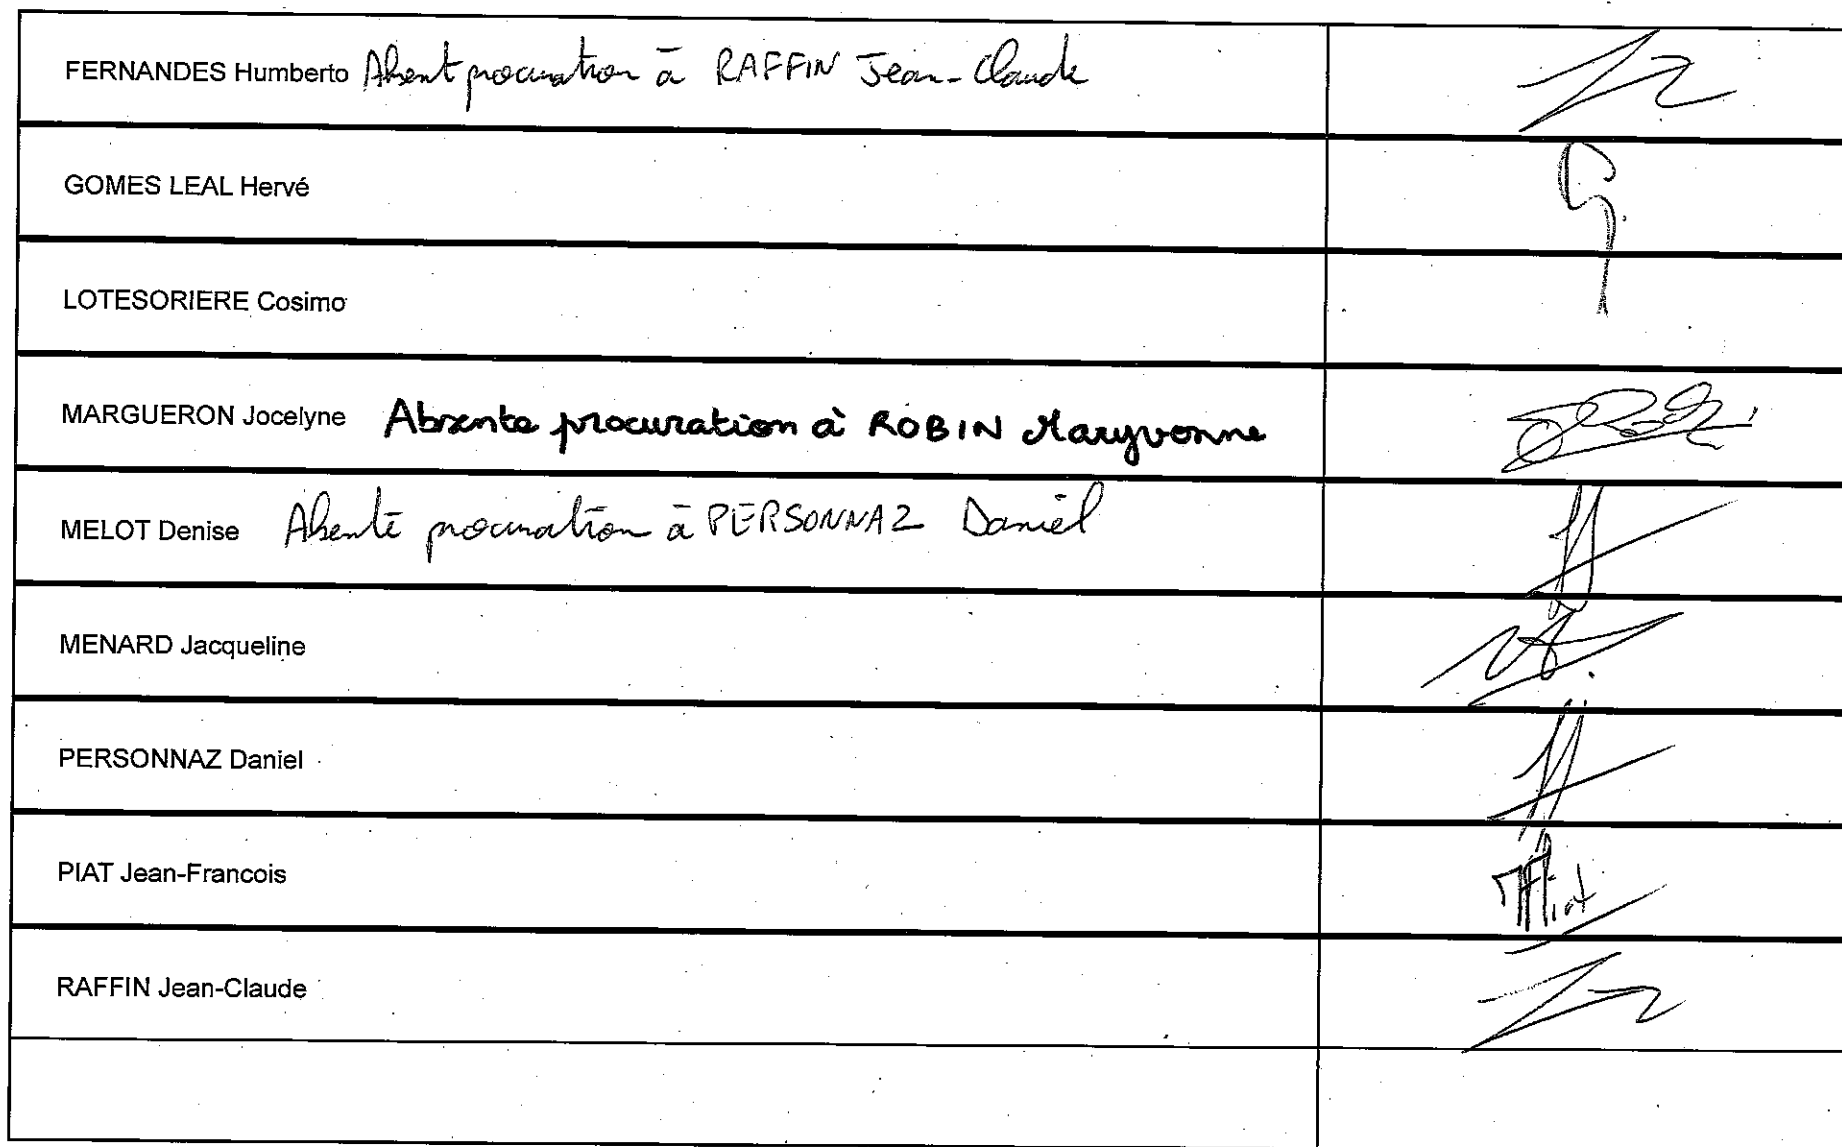 FERNANDES Humberto Absent procuration à RAFFIN Jean-Claude
GOMES LEAL Hervé
LOTESORIERE Cosimo
MARGUERON Jocelyne Absente procuration à ROBIN Maryvonne
MELOT Denise Absente procuration à PERSONNAZ Daniel
MENARD Jacqueline
PERSONNAZ Daniel
PIAT Jean-Francois
RAFFIN Jean-Claude